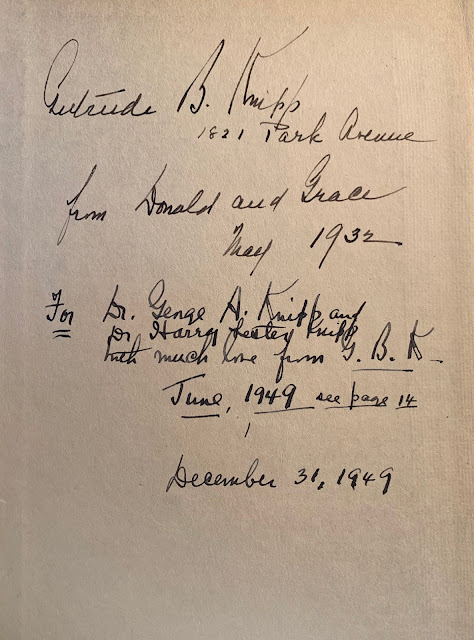 Gertrude B. Knipp
1821 Park Avenue
from Donald and Grace
May 1932
For Dr. George A. Knipp and
Dr. Harry Lesley Knipp
With much love from G. B. K
June, 1949 see page 14
December 31, 1949